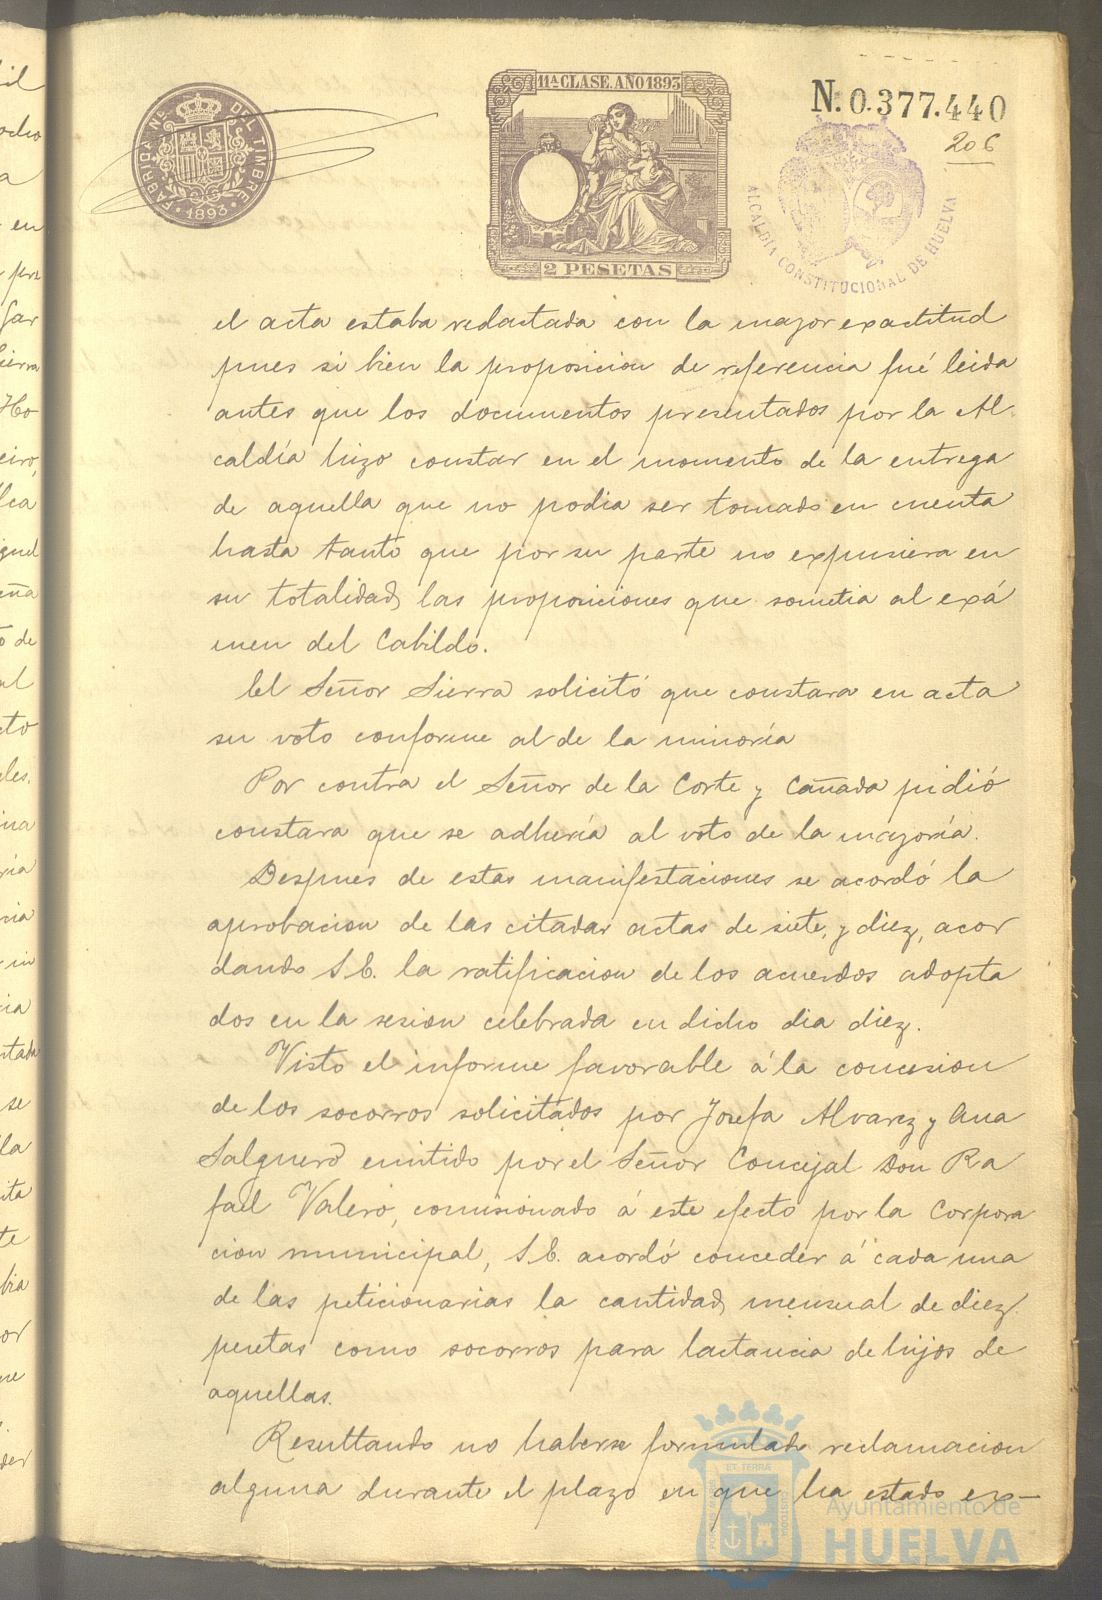 FABRICA Nᴸ DEL TIMBRE
1893
11ª CLASE. AÑO 1893
2 PESETAS
N. 0.377.440
206
ALCALDIA CONSTITUCIONAL DE HUELVA
el acta estaba redactada con la mayor exactitud
pues si bien la proposicion de referencia fué leida
antes que los documentos presentados por la Al-
caldía hizo constar en el momento de la entrega
de aquella que no podia ser tomada en cuenta
hasta tanto que por su parte no expusiera en
su totalidad, las proposiciones que sometia al exá
men del Cabildo.
El Señor Sierra solicitó que constara en acta
su voto conforme al de la minoría
Por contra el Señor de la Corte y Cañada pidió
constara que se adhería al voto de la mayoría.
Despues de estas manifestaciones se acordó la
aprobacion de las citadas actas de siete, y diez, acor
dando S.E. la ratificacion de los acuerdos adopta
dos en la sesion celebrada en dicho dia diez.
Visto el informe favorable á la concesion
de los socorros solicitados por Josefa Alvarez y Ana
Salguero emitido por el Señor Concejal Don Ra
fael Valero, comisionado á este efecto por la Corpora
cion municipal, S.E. acordó conceder á cada una
de las peticionarias la cantidad, mensual de diez
pesetas como socorros para lactancia de hijos de
aquellas.
Resultando no haberse formulado reclamacion
alguna durante el plazo en que ha estado ex-
Ayuntamiento de
HUELVA